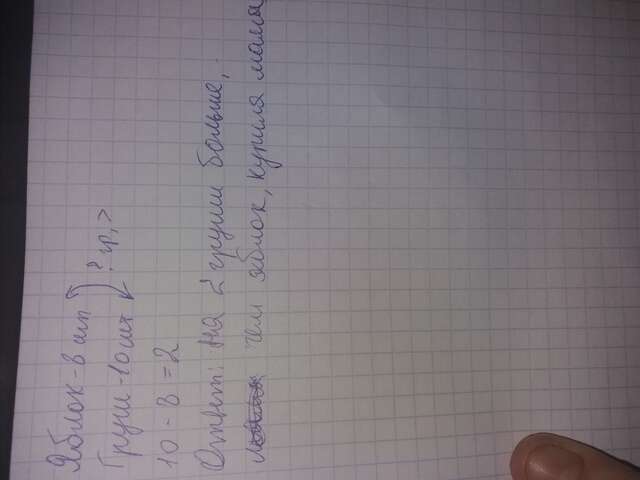 Яблок - 8 шт
Груш - 10 шт ? гр. >
10 - 8 = 2
Ответ: на 2 груши больше,
чем яблок, купила мама